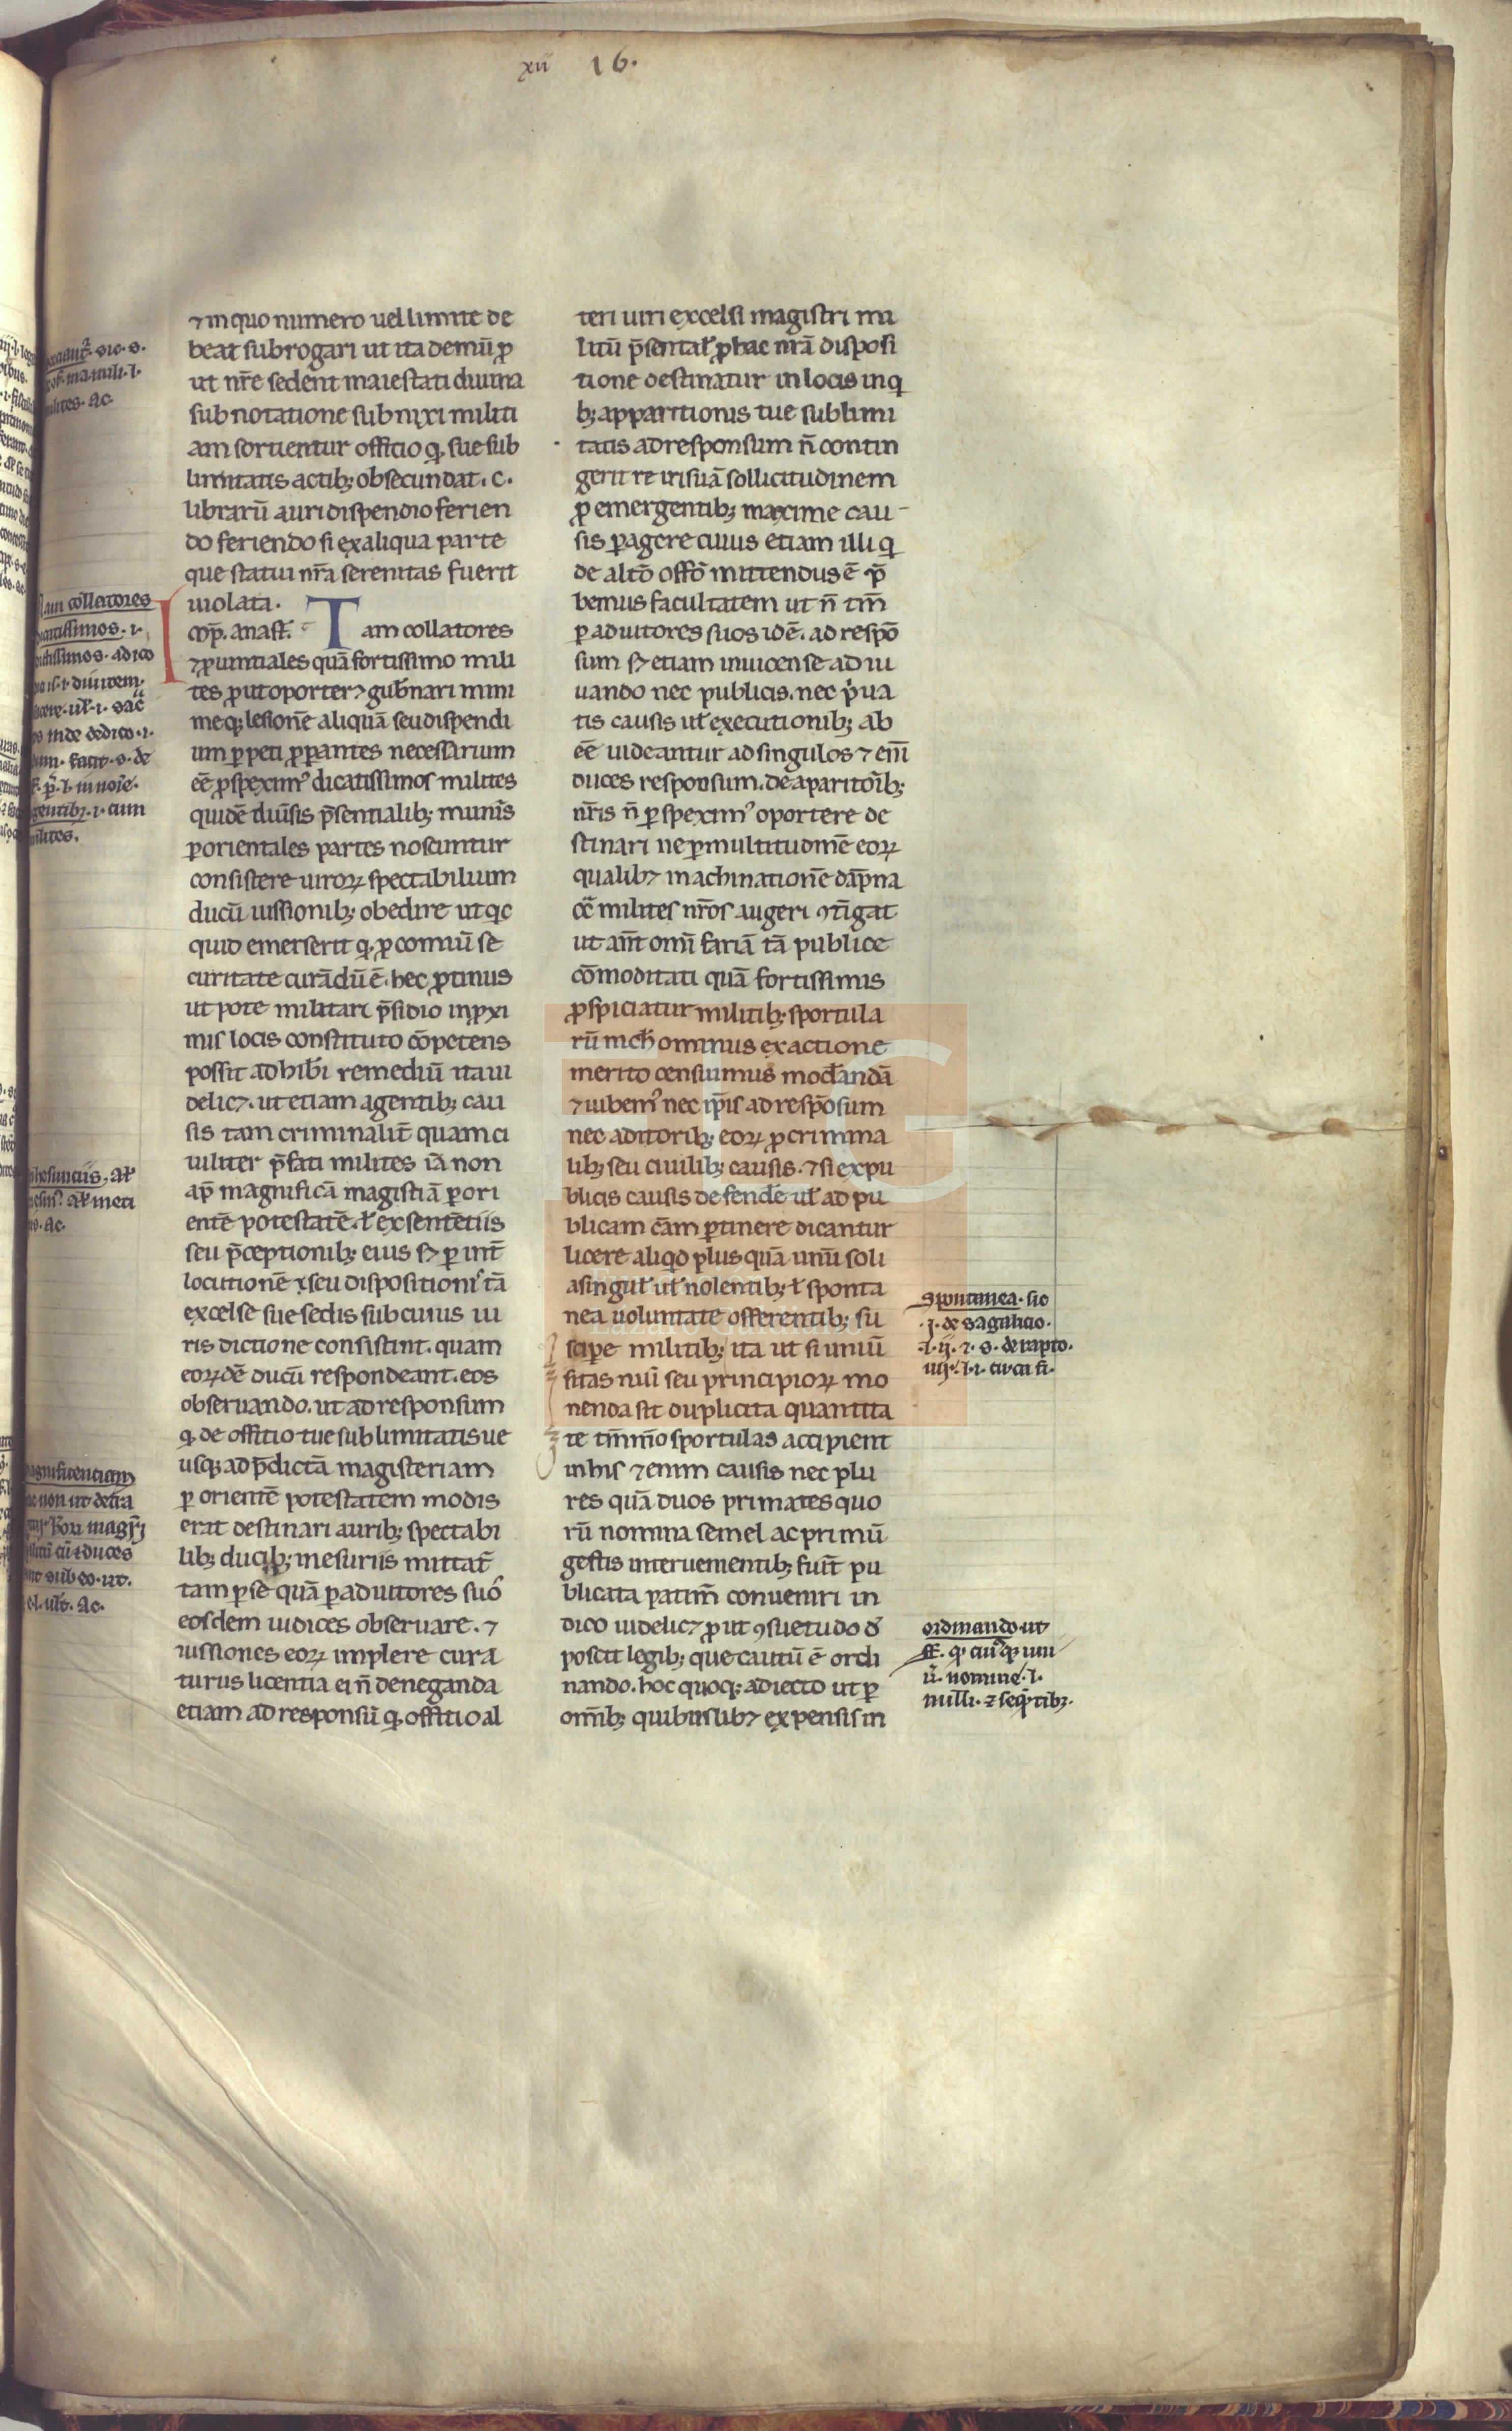 xii 16.
⁊ in quo numero uel limite de
beat subrogari ut ita demū ꝓ
ut nr̄e sedent maiestati diuina
sub notatione subnixi militi
am sortientur officio q̨ sue sub
limitatis actib; obsecundat. c.
librarū auri dispendio ferien
do feriendo si ex aliqua parte
que statui nr̄a serenitas fuerit
uiolata.
Imꝑ. anast. Tam collatores
⁊ ꝓuintiales quā fortissimo mili
tes ꝓut oporter⁊ gub̄nari mini
meq; lesionē aliquā seu dispendi
um ꝑpeti ꝓꝑantes necessarium
eē ꝓspexim᾽ dicatissimos milites
quidē diūsis p̄sentialib; munīs
ꝑ orientales partes noscuntur
consistere uiroꝝ spectabilium
ducū iussionib; obedire ut qc
quid emerserit q̨ ꝓ comuū se
curitate curādū ē. hec ꝓtinus
ut pote militari p̄sidio in ꝓxi
mis locis constituto cōpetens
possit adhib̄i remediū ita ui
delic⁊. ut etiam agentib; cau
sis tam criminalit̄ quam ci
uiliter p̄fati milites iā non
ap̄ magnificā magistiā ꝑ ori
entē potestatē. ł ex sentētiis
seu p̄ceptionib; eius s⁊ ꝑ int̄
locutionē ⁊ seu dispositioni᾽ tā
excelse sue sedis sub cuius iu
ris dictione consistint. quam
eoꝝdē ducū respondeant. eos
obseruando. ut ad responsum
q̨ de offitio tue sublimitatis ue
usq; ad p̄dictā magisteriam
ꝑ orientē potestatem modis
erat destinari aurib; spectabi
lib; ducib; mesuriis mittat̄
tam ꝑ se quā ꝑ adiutores suō
eosdem iudices obseruare. ⁊
iussiones eoꝝ implere cura
turus licentia ei n̄ deneganda
etiam ad responsū q̨ offitio al
teri uiri excelsi magistri mi
litū p̄sentał ꝓ hac nr̄a disposi
tione destinatur in locis in q
b; apparitionis tue sublimi
tatis ad responsum n̄ contin
gerit re iri suā sollicitudinem
ꝓ emergentib; maxime cau
sis ꝑagere cuius etiam illi q
de altō offō mittendus ē p̄
bemus facultatem ut n̄ tm̄
ꝑ adiutores suos idē. ad respō
sum s⁊ etiam inuicen se ad iu
uando nec publicis. nec p̄ua
tis causis uł executionib; ab
eē uideantur ad singulos ⁊ enī
duces responsum. de aparitoīb;
nr̄is n̄ ꝑspexim᾽ oportere de
stinari ne ꝑ multitudinē eoꝝ
qualib⁊ machinationē dāpna
cc̄ milites nr̄os augeri ꝯtīgat
ut am̄t omī fariā tā publice
cōmoditati quā fortissimis
ꝓspiciatur militib; sportula
rū mcħominus exactione
merito censuimus modandā
⁊ iubem᾽ nec ip̄is ad respōsum
nec aditorib; eoꝝ ꝓ crimina
lib; seu ciuilib; causis. ⁊ si ex pu
blicis causis defendē uł ad pu
blicam cām ꝑtinere dicantur
licere aliqđ plus quā unū soli
a singuł uł nolentib; ł sponta
nea uoluntate offerentib; su
scipe militib; ita ut si uniū
sitas nūi seu principioꝝ mo
nenda sit duplicita quantita
te tm̄mo sportulas accipient
in his ⁊enim causis nec plu
res quā duos primates quo
rū nomina semel ac primū
gestis interuementib; fuīt pu
blicata patim̄ conueniri in
dico uidelic⁊ ꝓut ꝯsuetudo đ
poscit legib; que cautū ē ordi
nando. hoc quoq; adiecto ut ꝑ
om̄ib; quibuslib⁊ expensis in
ꝯpontanea. sic
.j. de sagulicio.
.l. ij. ⁊. s. de rapto.
iiij. l. i. circa fi.
ordinando ut
ff. qđ cuiusq; uni
ū. nomine. l.
milli. ⁊ seq̄ntib;.